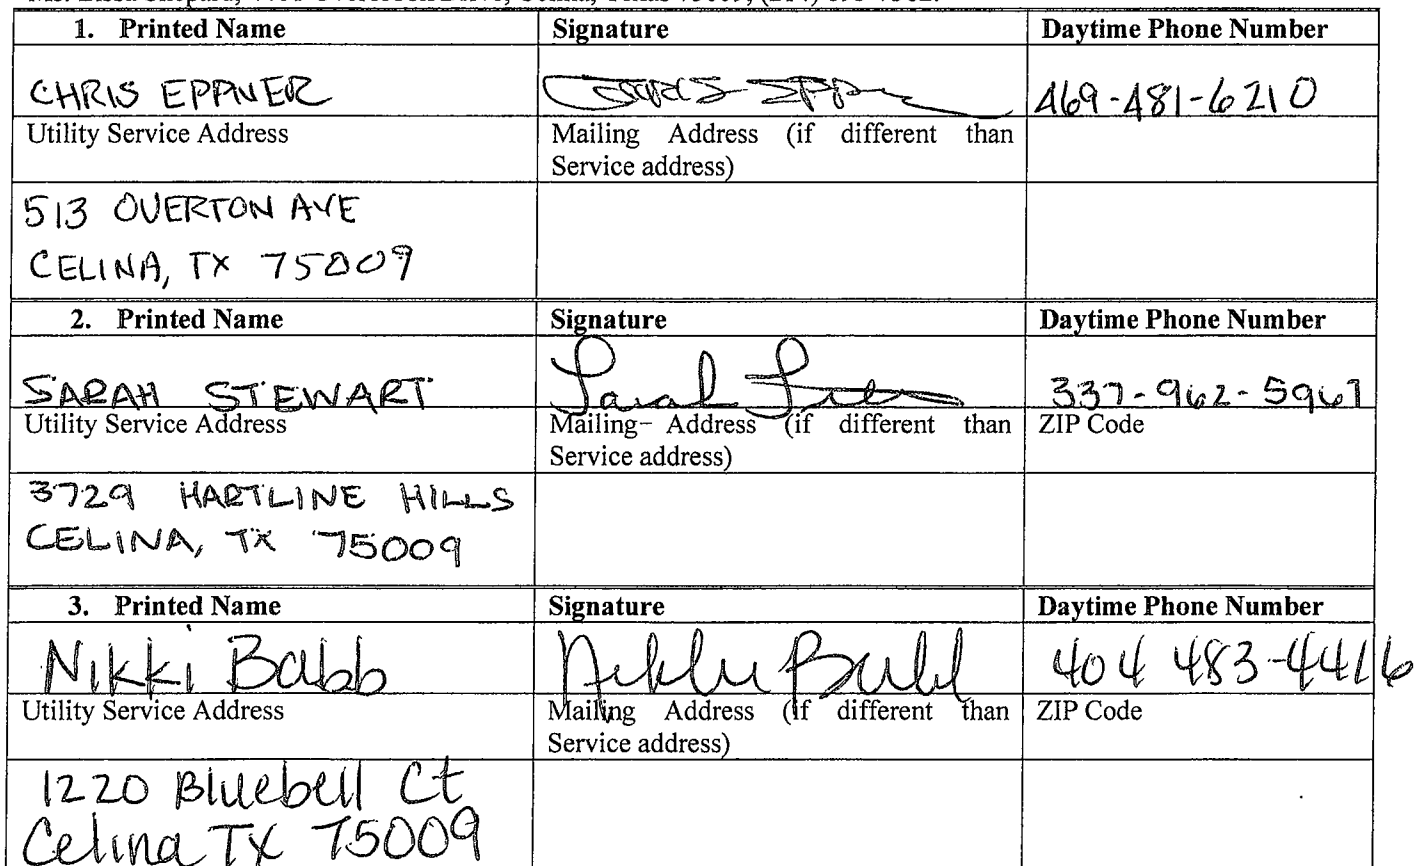 1. Printed Name Signature Daytime Phone Number
CHRIS EPPNER 469-481-6210
Utility Service Address Mailing Address (if different than
Service address)
513 OVERTON AVE
CELINA, TX 75009
2. Printed Name Signature Daytime Phone Number
SARAH STEWART Sarah 337-962-5967
Utility Service Address Mailing Address (if different than ZIP Code
Service address)
3729 HARTLINE HILLS
CELINA, TX 75009
3. Printed Name Signature Daytime Phone Number
Nikki Babb Nikki Babb 404 483-4416
Utility Service Address Mailing Address (if different than ZIP Code
Service address)
1220 Bluebell Ct
Celina TX 75009